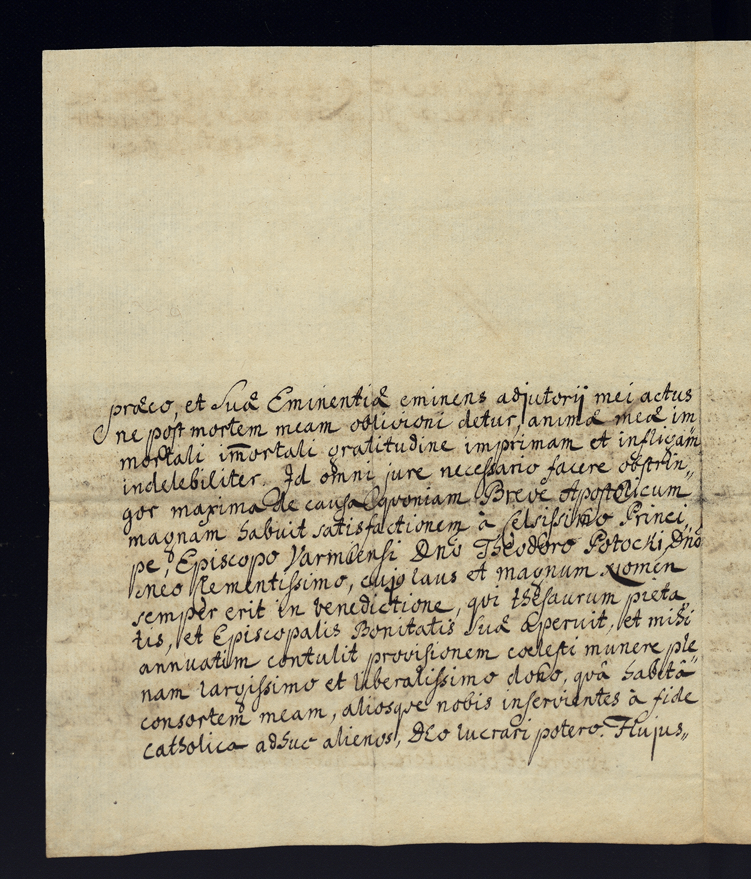 præco, et Suæ Eminentiæ eminens adjutorij mei actus
ne post mortem meam oblivioni detur, animæ meæ im
mortali im̄ortali gratitudine imprimam et infligam
indelebiliter. Id omni jure necessario facere obstrin„
gor maxima de causa quoniam Breve Apostolicum
magnam habuit satisfactionem à Celsissimo Princi„
pe, Episcopo Varmiensi Dno Theodoro Potocki, Dno
meo Clementissimo, cujus laus et magnum Nomen
semper erit in benedictione, qui thesaurum pieta
tis, et Episcopalis Bonitatis Suæ aperuit, et mihi
annuatim contulit provisionem coelesti munere ple
nam largissimo et liberalissimo dono, quâ habitâ
consortem meam, aliosque nobis inservientes à fide
catholica adhuc alienos, Deo lucrari potero. Hujus„